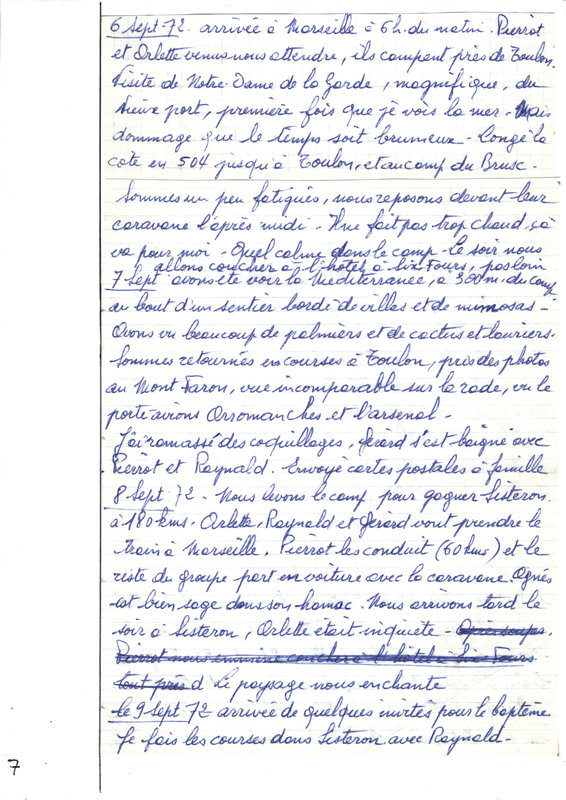 6 Sept 72. arrivée à Marseille à 6h. du matin. Pierrot
et Orlette venus nous attendre, ils campent près de Toulon.
Visite de Notre-Dame de la Garde, magnifique, du
vieux port, première fois que je vois la mer. Mais
dommage que le temps soit brumeux - Longé la
côte en 504 jusqu'à Toulon, et au camp du Brusc.
Sommes un peu fatigués, nous reposons devant leur
caravane l'après midi - Il ne fait pas trop chaud, çà
va pour moi - Quel calme dans le camp - Le soir nous
allons coucher à l'hôtel à Six Fours, pas loin
7 Sept avons été voir la Méditerranée, à 300 m. du camp
au bout d'un sentier bordé de villas et de mimosas -
Avons vu beaucoup de palmiers et de cactus et lauriers.
Sommes retournés en courses à Toulon, pris des photos
au Mont Faron, vue incomparable sur la rade, vu le
porte avions Arromanches et l'arsenal -
J'ai ramassé des coquillages, Gérard s'est baigné avec
Pierrot et Raynald. Envoyé cartes postales à famille
8 Sept. 72 - Nous levons le camp pour gagner Sisteron.
à 180 kms. Orlette, Raynald et Gérard vont prendre le
train à Marseille. Pierrot les conduit (60 kms) et le
reste du groupe part en voiture avec la caravane. Agnès
est bien sage dans son hamac. Nous arrivons tard le
soir à Sisteron, Orlette était inquiète -
Pierrot nous emmène coucher à l'hôtel à Six Fours
tout près d Le paysage nous enchante
le 9 Sept 72 arrivée de quelques invités pour le baptême
Je fais les courses dans Sisteron avec Raynald -
7